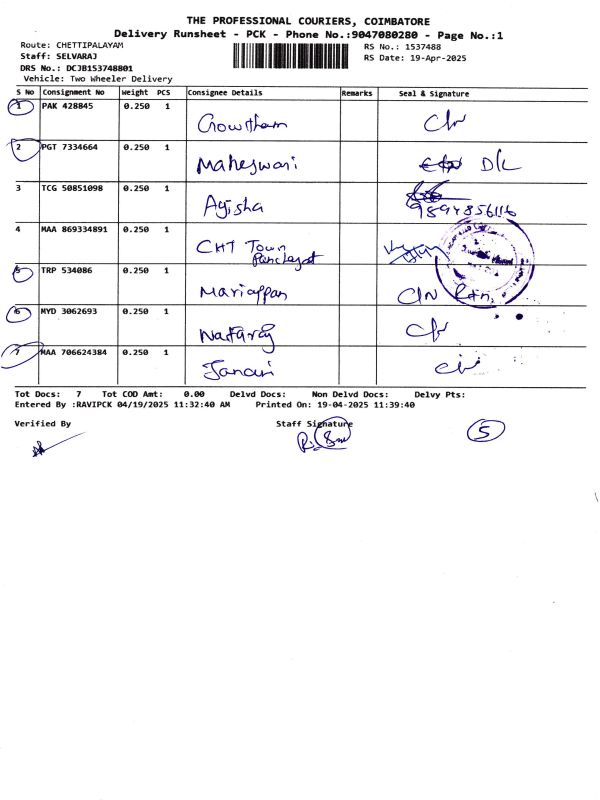 THE PROFESSIONAL COURIERS, COIMBATORE
Delivery Runsheet - PCK - Phone No.:9047080280 - Page No.:1
Route: CHETTIPALAYAM
RS No.: 1537488
Staff: SELVARAJ
RS Date: 19-Apr-2025
DRS No.: DCJB153748801
Vehicle: Two Wheeler Delivery
S No Consignment No Weight PCS Consignee Details Remarks Seal & Signature
1 PAK 428845 0.250 1 Gowtham
2 PGT 7334664 0.250 1 Maheswari D/L
3 TCG 50851098 0.250 1 Ayisha 9894856116
4 MAA 869334891 0.250 1 CHT Town
Panchayat
5 TRP 534086 0.250 1 Mariappan
6 MYD 3062693 0.250 1 Nataraj
7 MAA 706624384 0.250 1 Janani
Tot Docs: 7 Tot COD Amt: 0.00 Delvd Docs: Non Delvd Docs: Delvy Pts:
Entered By :RAVIPCK 04/19/2025 11:32:40 AM Printed On: 19-04-2025 11:39:40
Verified By Staff Signature
5